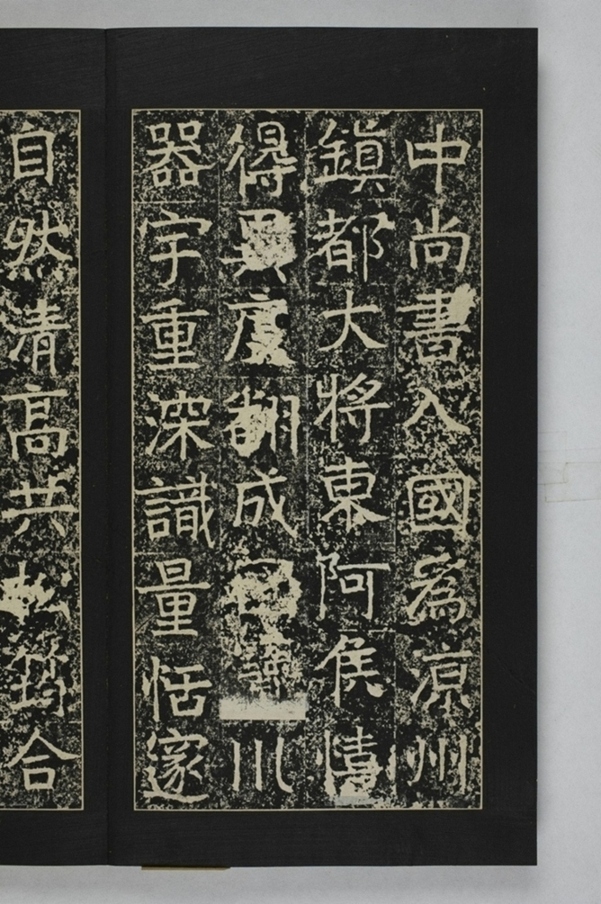 中尚書入國為涼州
鎮都大將東阿侯
得 度翻成 川
器宇重深識量恬邃
自然清高共松筠合